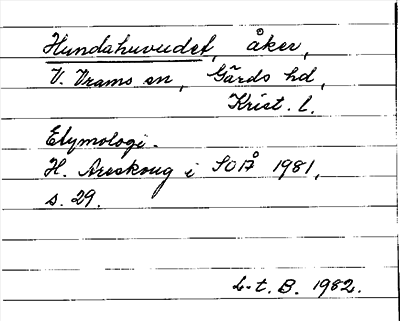 Hundahuvudet, åker,
V. Vrams sn, Gärds hd,
Krist. l.
Etymologi.
H. Areskoug i SOÅ 1981,
s. 29.
L-t. B. 1982.